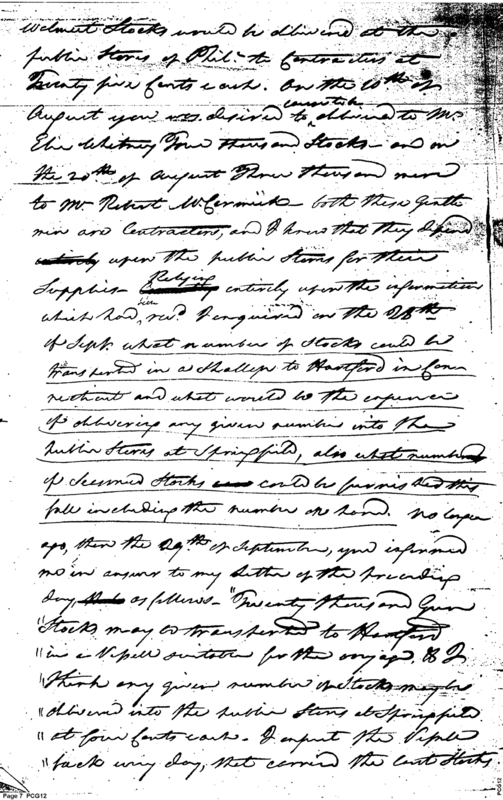 Walnut Stocks would be delivered at the
public Stores of Phil.a to Contractors at
Twenty five Cents each. On the 10th of
August you was desired to cause to be delivered to Mr
Eli Whitney Four thousand Stocks – and on
the 20th of August Three thousand more
to Mr Robert McCormick – both these Gentle
men are Contractors, and I know that they depend
entirely upon the public Stores for their
Supplies – Relying entirely upon the information
which had been recd. I enquired on the 28th
of Sept. what number of Stocks could be
transported in a Shallop to Hartford in Conn
necticut and what would be the expence
of delivering any given number into the
public Stores at Springfield, also what number
of Seasoned Stocks could be furnished this
fall including the number on hand. No longer
ago, than the 29th of September, you informed
me in answer to my Letter of the preceding
day as follows – "Twenty thousand Gun
"Stocks may be transported to Hartford
"in a Vessell suitable for the voyage, & I
"think any given number of Stocks may be
"delivered into the public Stores at Springfield
"at four Cents each. I expect the Vessell
"back every day, that carried the last Stocks
Page 7 PCG12
PCG12